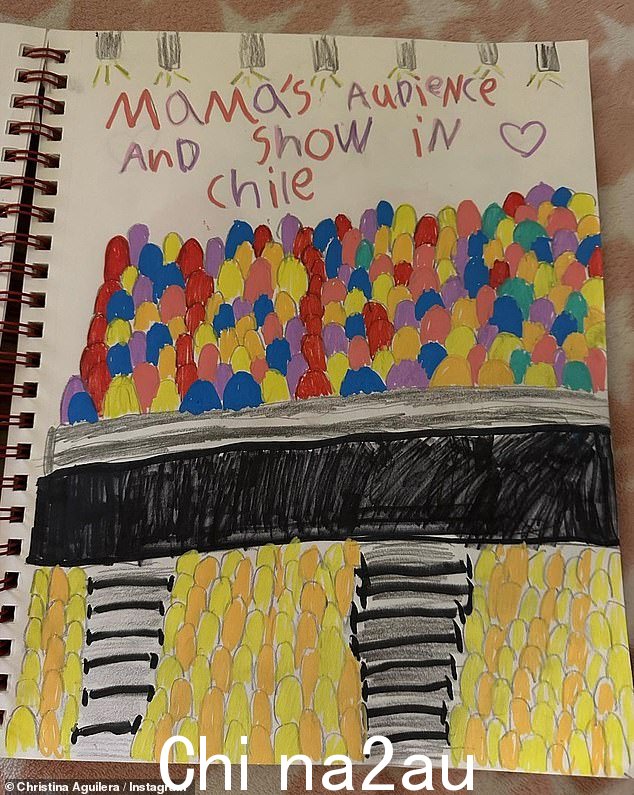 Mama's Audience
And Show in
Chile
© Christina Aguilera / Instagram
Chi na2au